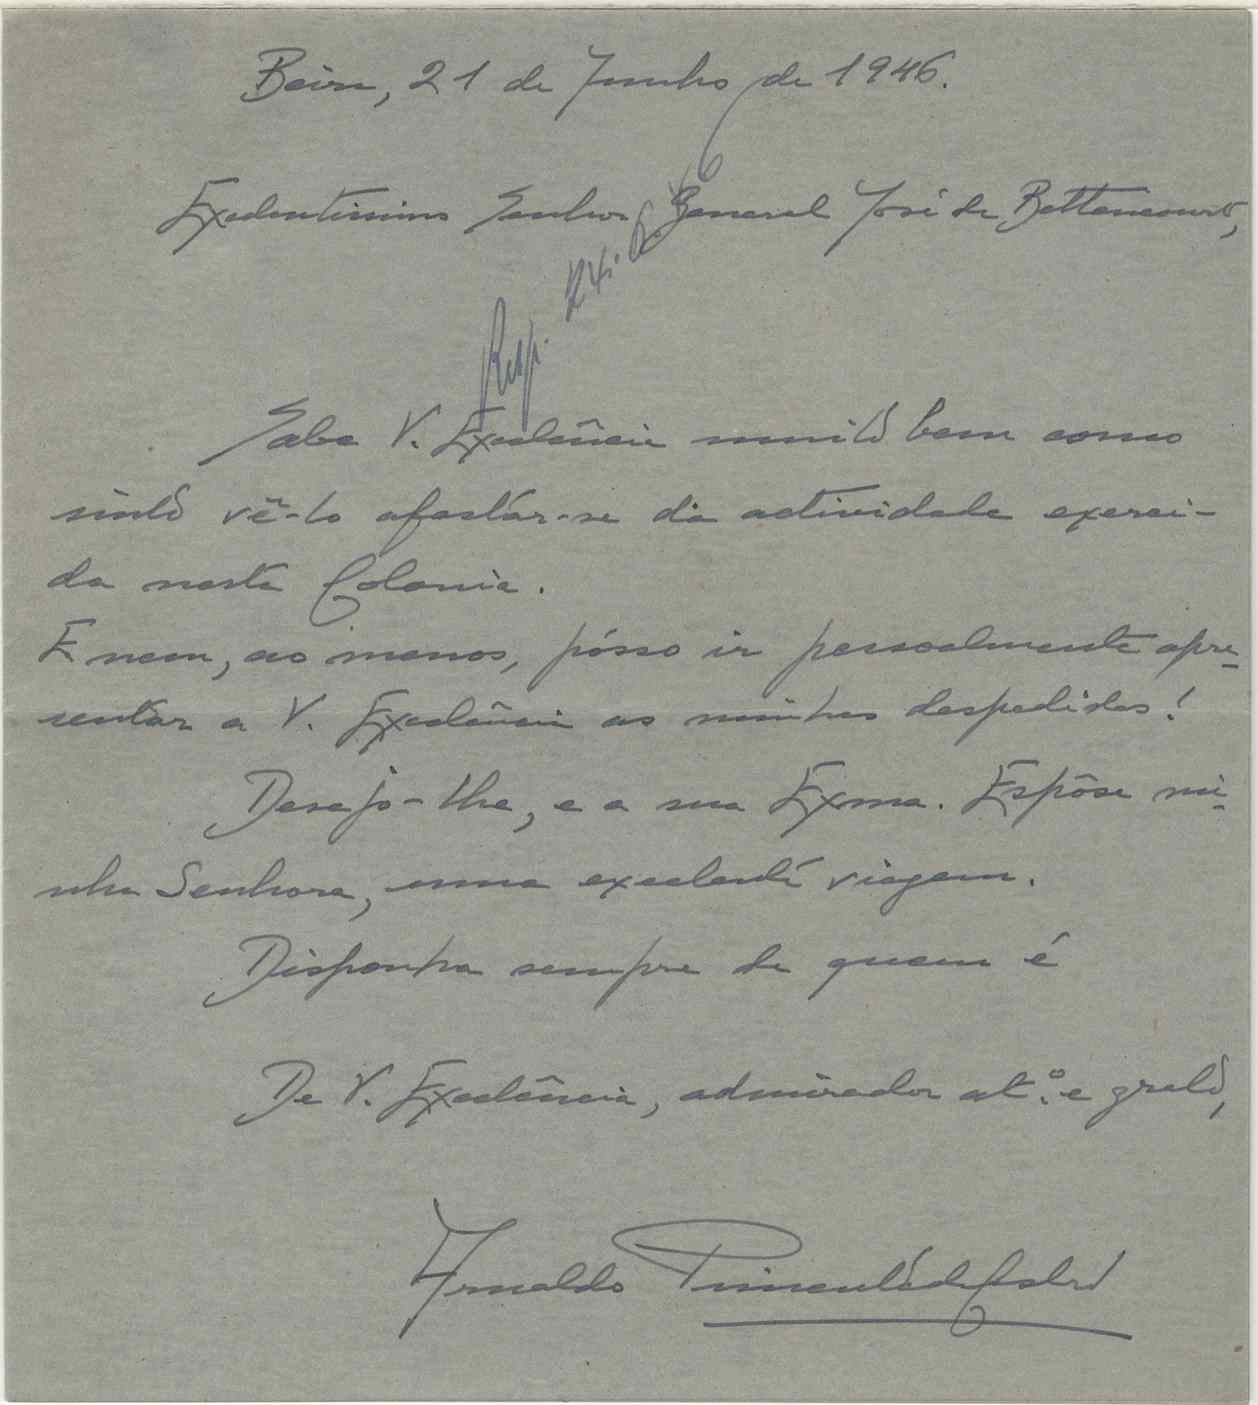 Beira, 21 de Junho de 1946.
Excelentissimo Senhor General José de Bettencourt,
Resp.
Sabe V. Excelência muito bem como
sinto vê-lo afastar-se da actividade exerci-
da nesta Colonia.
E nem, ao menos, pósso ir pessoalmente apre-
sentar a V. Excelência as minhas despedidas!
Desejo-lhe, e a sua Exma. Espôsa mi-
nha Senhora, uma excelente viagem.
Disponha sempre de quem é
De V. Excelência, admirador at.º e grato,
Arnaldo Pimentel de Castro